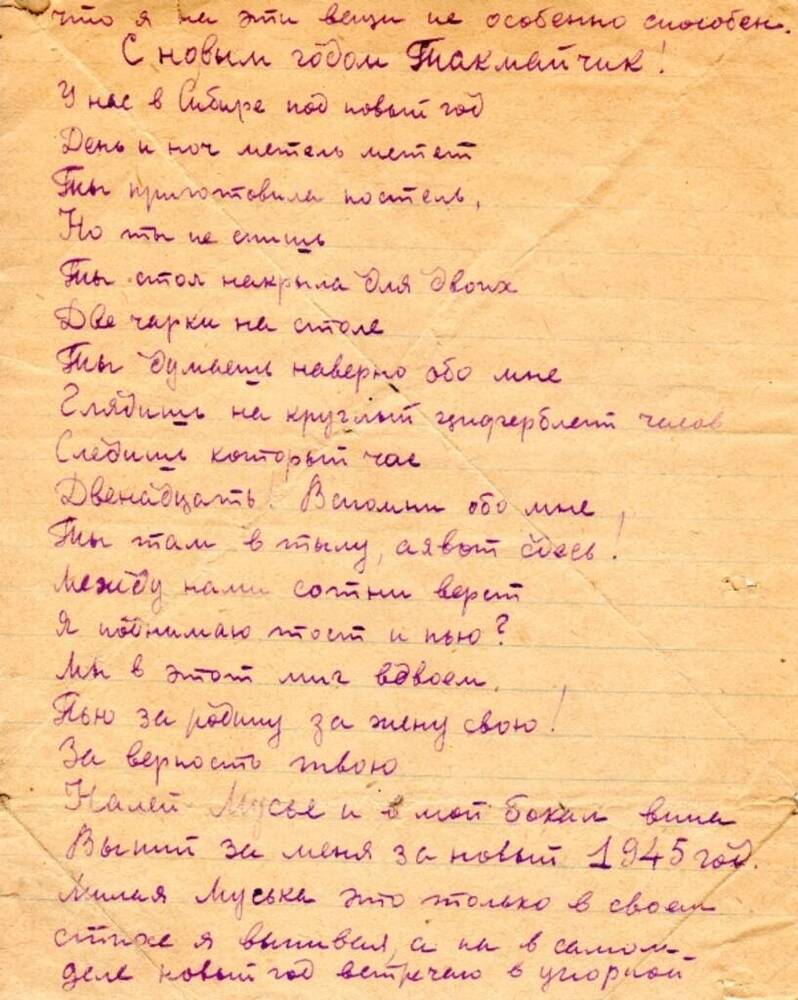 что я на эти вещи не особенно способен.
С новым годом Такмайчик!
У нас в Сибире под новый год
День и ноч метель метет
Ты приготовила постель,
Но ты не спишь
Ты стол накрыла для двоих
Две чарки на столе
Ты думаешь наверно обо мне
Глядишь на круглый циферблат часов
Следишь который час
Двенадцать! Вспомни обо мне,
Ты там в тылу, а я вот здесь!
Между нами сотни верст
Я поднимаю тост и пью?
Мы в этот миг вдвоем.
Пью за родину за жену свою!
За верность твою
Налей Мусье и в мой бокал вина
Выпий за меня за новый 1945 год.
Милая Муська это только в своем
стихе я выпивал, а на в самом
деле новый год встречаю в упорной